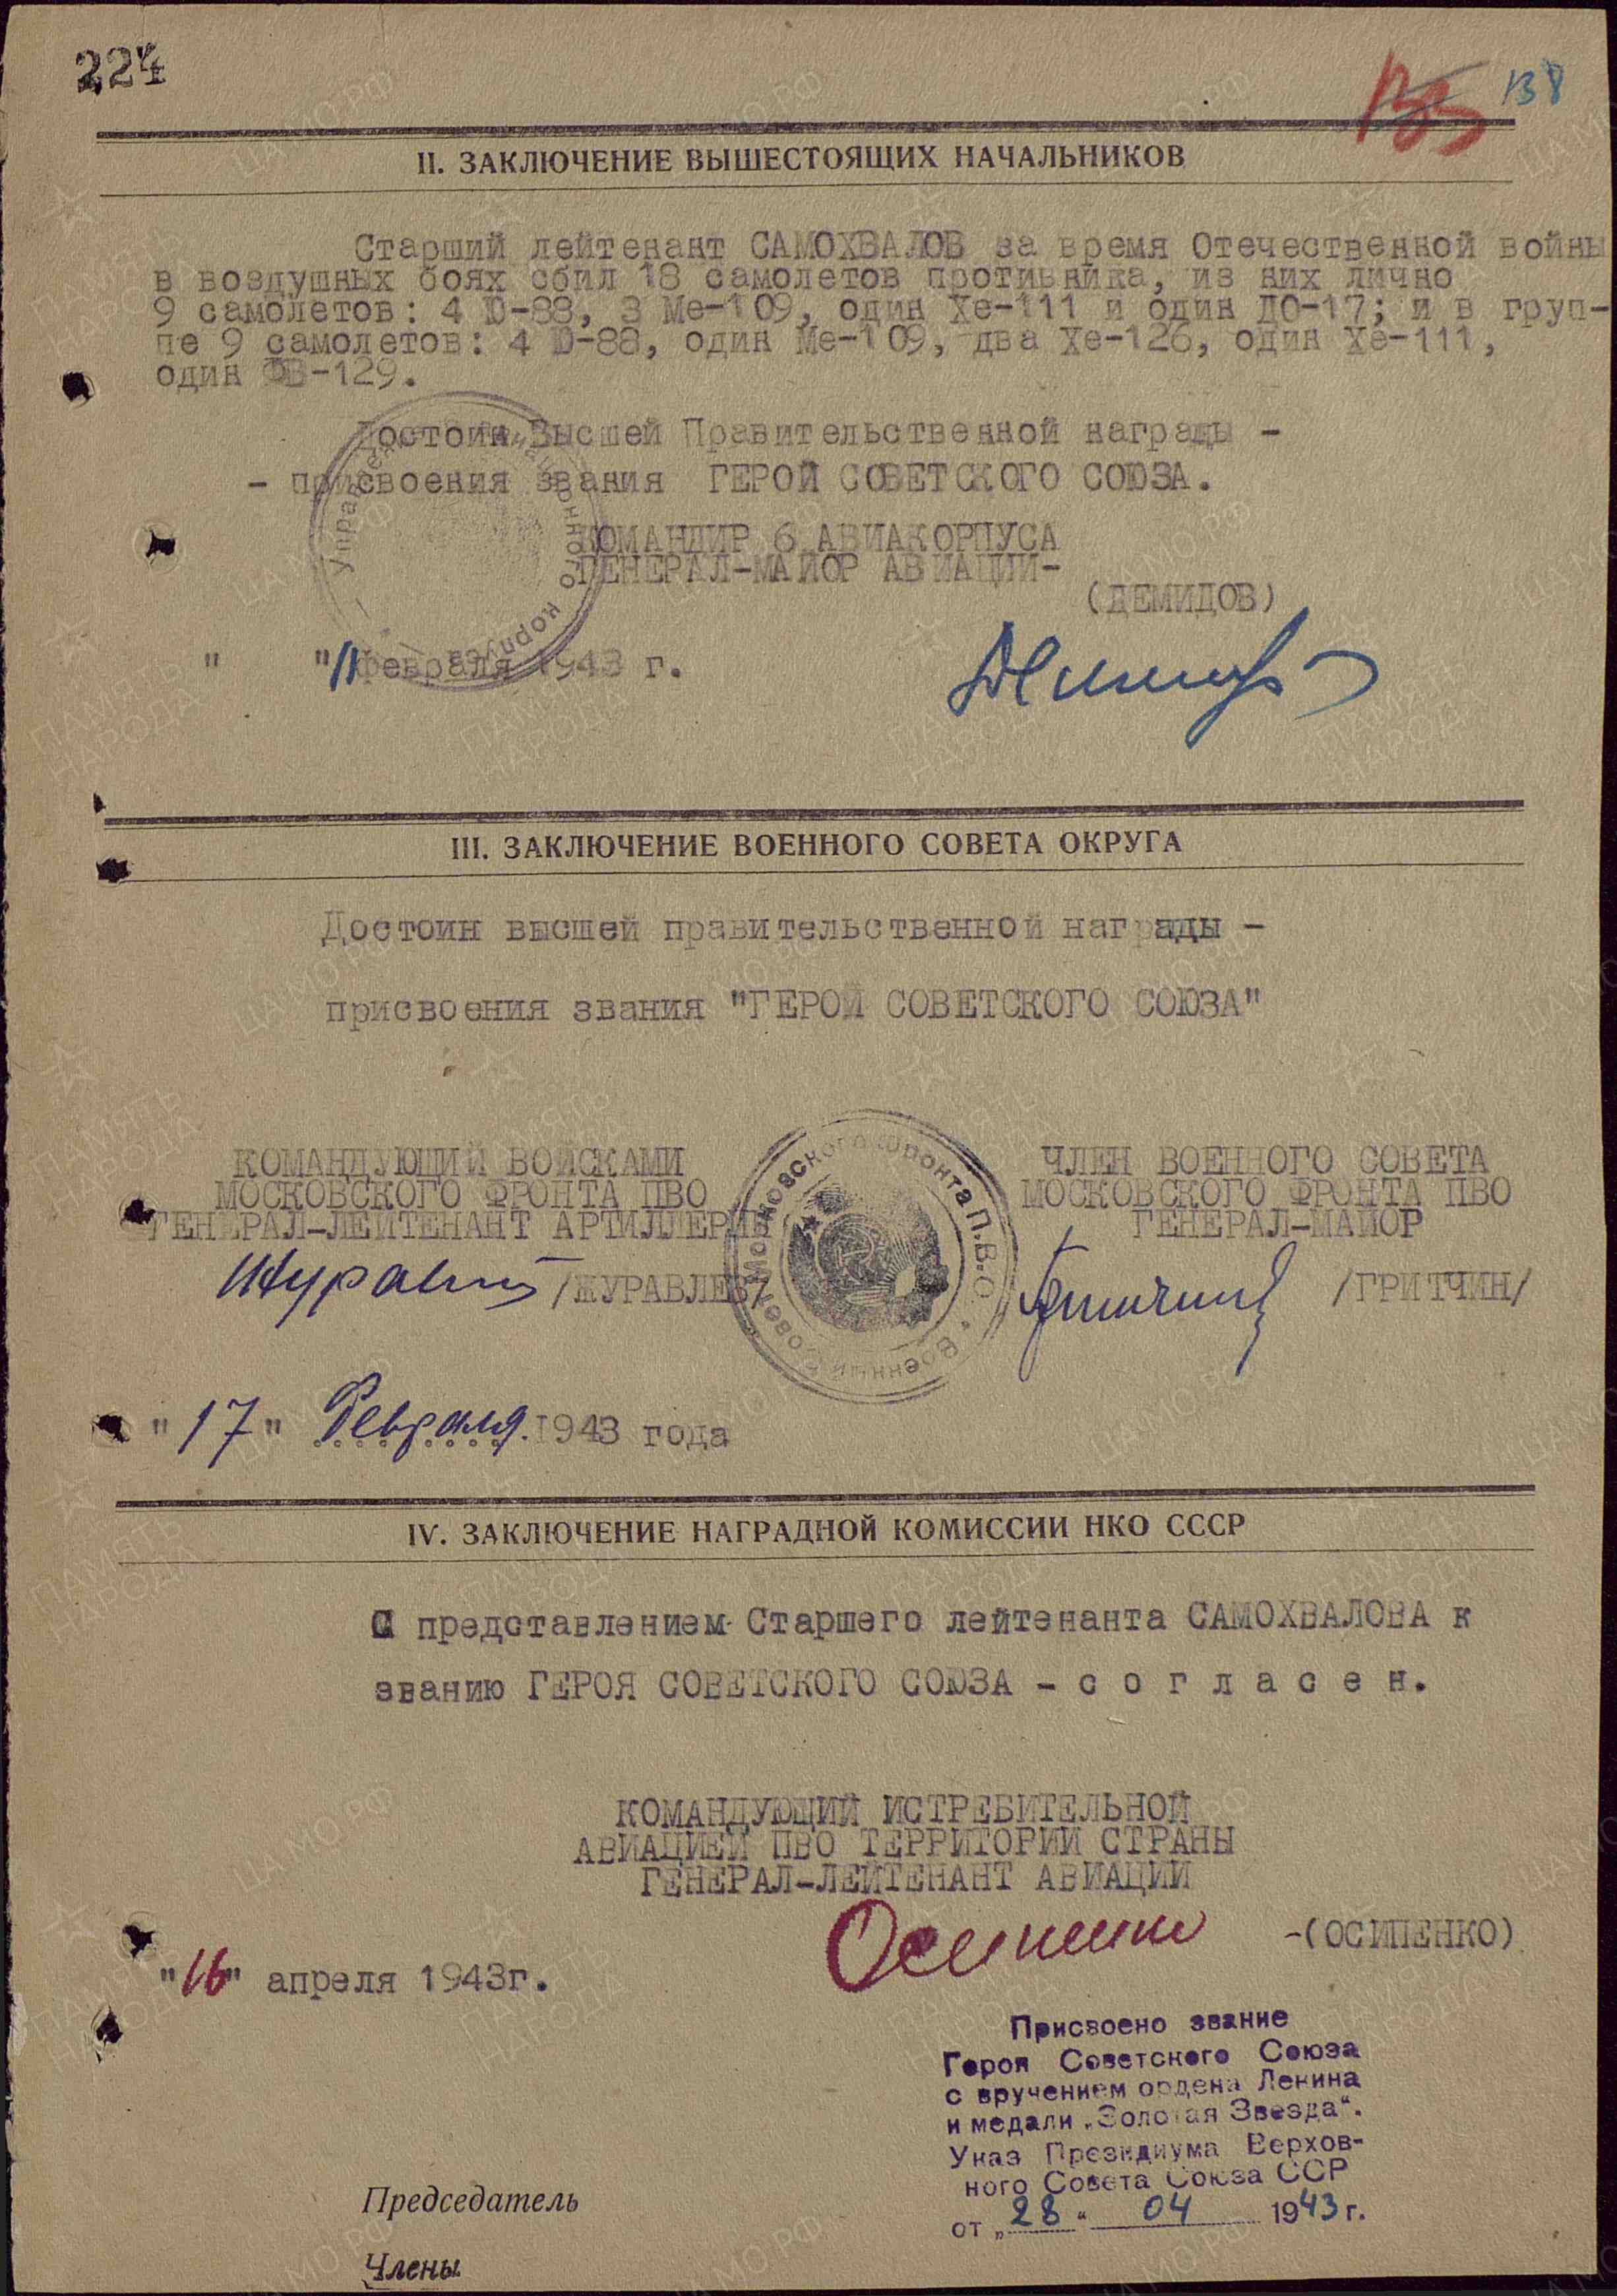 224
135 138
II. ЗАКЛЮЧЕНИЕ ВЫШЕСТОЯЩИХ НАЧАЛЬНИКОВ
Старший лейтенант САМОХВАЛОВ за время Отечественной войны
в воздушных боях сбил 18 самолетов противника, из них лично
9 самолетов: 4 Ю-88, 3 Ме-109, один Хе-111 и один ДО-17; и в груп-
пе 9 самолетов: 4 Ю-88, один Ме-109, два Хе-126, один Хе-111,
один ФВ-129.
Достоин Высшей Правительственной награды -
- присвоения звания ГЕРОЙ СОВЕТСКОГО СОЮЗА.
КОМАНДИР 6 АВИАКОРПУСА
ГЕНЕРАЛ-МАЙОР АВИАЦИИ-
(ДЕМИДОВ)
" "11 февраля 1943 г.
III. ЗАКЛЮЧЕНИЕ ВОЕННОГО СОВЕТА ОКРУГА
Достоин высшей правительственной награды -
присвоения звания "ГЕРОЙ СОВЕТСКОГО СОЮЗА"
КОМАНДУЮЩИЙ ВОЙСКАМИ
МОСКОВСКОГО ФРОНТА ПВО
ГЕНЕРАЛ-ЛЕЙТЕНАНТ АРТИЛЛЕРИИ
/ЖУРАВЛЕВ/
Военный Совет Московского фронта П.В.О.
ЧЛЕН ВОЕННОГО СОВЕТА
МОСКОВСКОГО ФРОНТА ПВО
ГЕНЕРАЛ-МАЙОР
/ГРИТЧИН/
"17" Февраля 1943 года
IV. ЗАКЛЮЧЕНИЕ НАГРАДНОЙ КОМИССИИ НКО СССР
С представлением Старшего лейтенанта САМОХВАЛОВА к
званию ГЕРОЯ СОВЕТСКОГО СОЮЗА - с о г л а с е н.
КОМАНДУЮЩИЙ ИСТРЕБИТЕЛЬНОЙ
АВИАЦИЕЙ ПВО ТЕРРИТОРИИ СТРАНЫ
ГЕНЕРАЛ-ЛЕЙТЕНАНТ АВИАЦИИ
-(ОСИПЕНКО)
"16" апреля 1943г.
Присвоено звание
Героя Советского Союза
с вручением ордена Ленина
и медали „Золотая Звезда“.
Указ Президиума Верхов-
ного Совета Союза ССР
от „28“ 04 1943 г.
Председатель
Члены